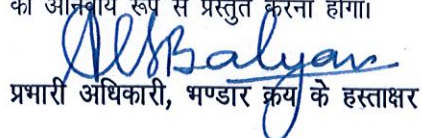 को अनिवार्य रूप से प्रस्तुत करना होगा।
ASBalyan
प्रभारी अधिकारी, भण्डार क्रय के हस्ताक्षर